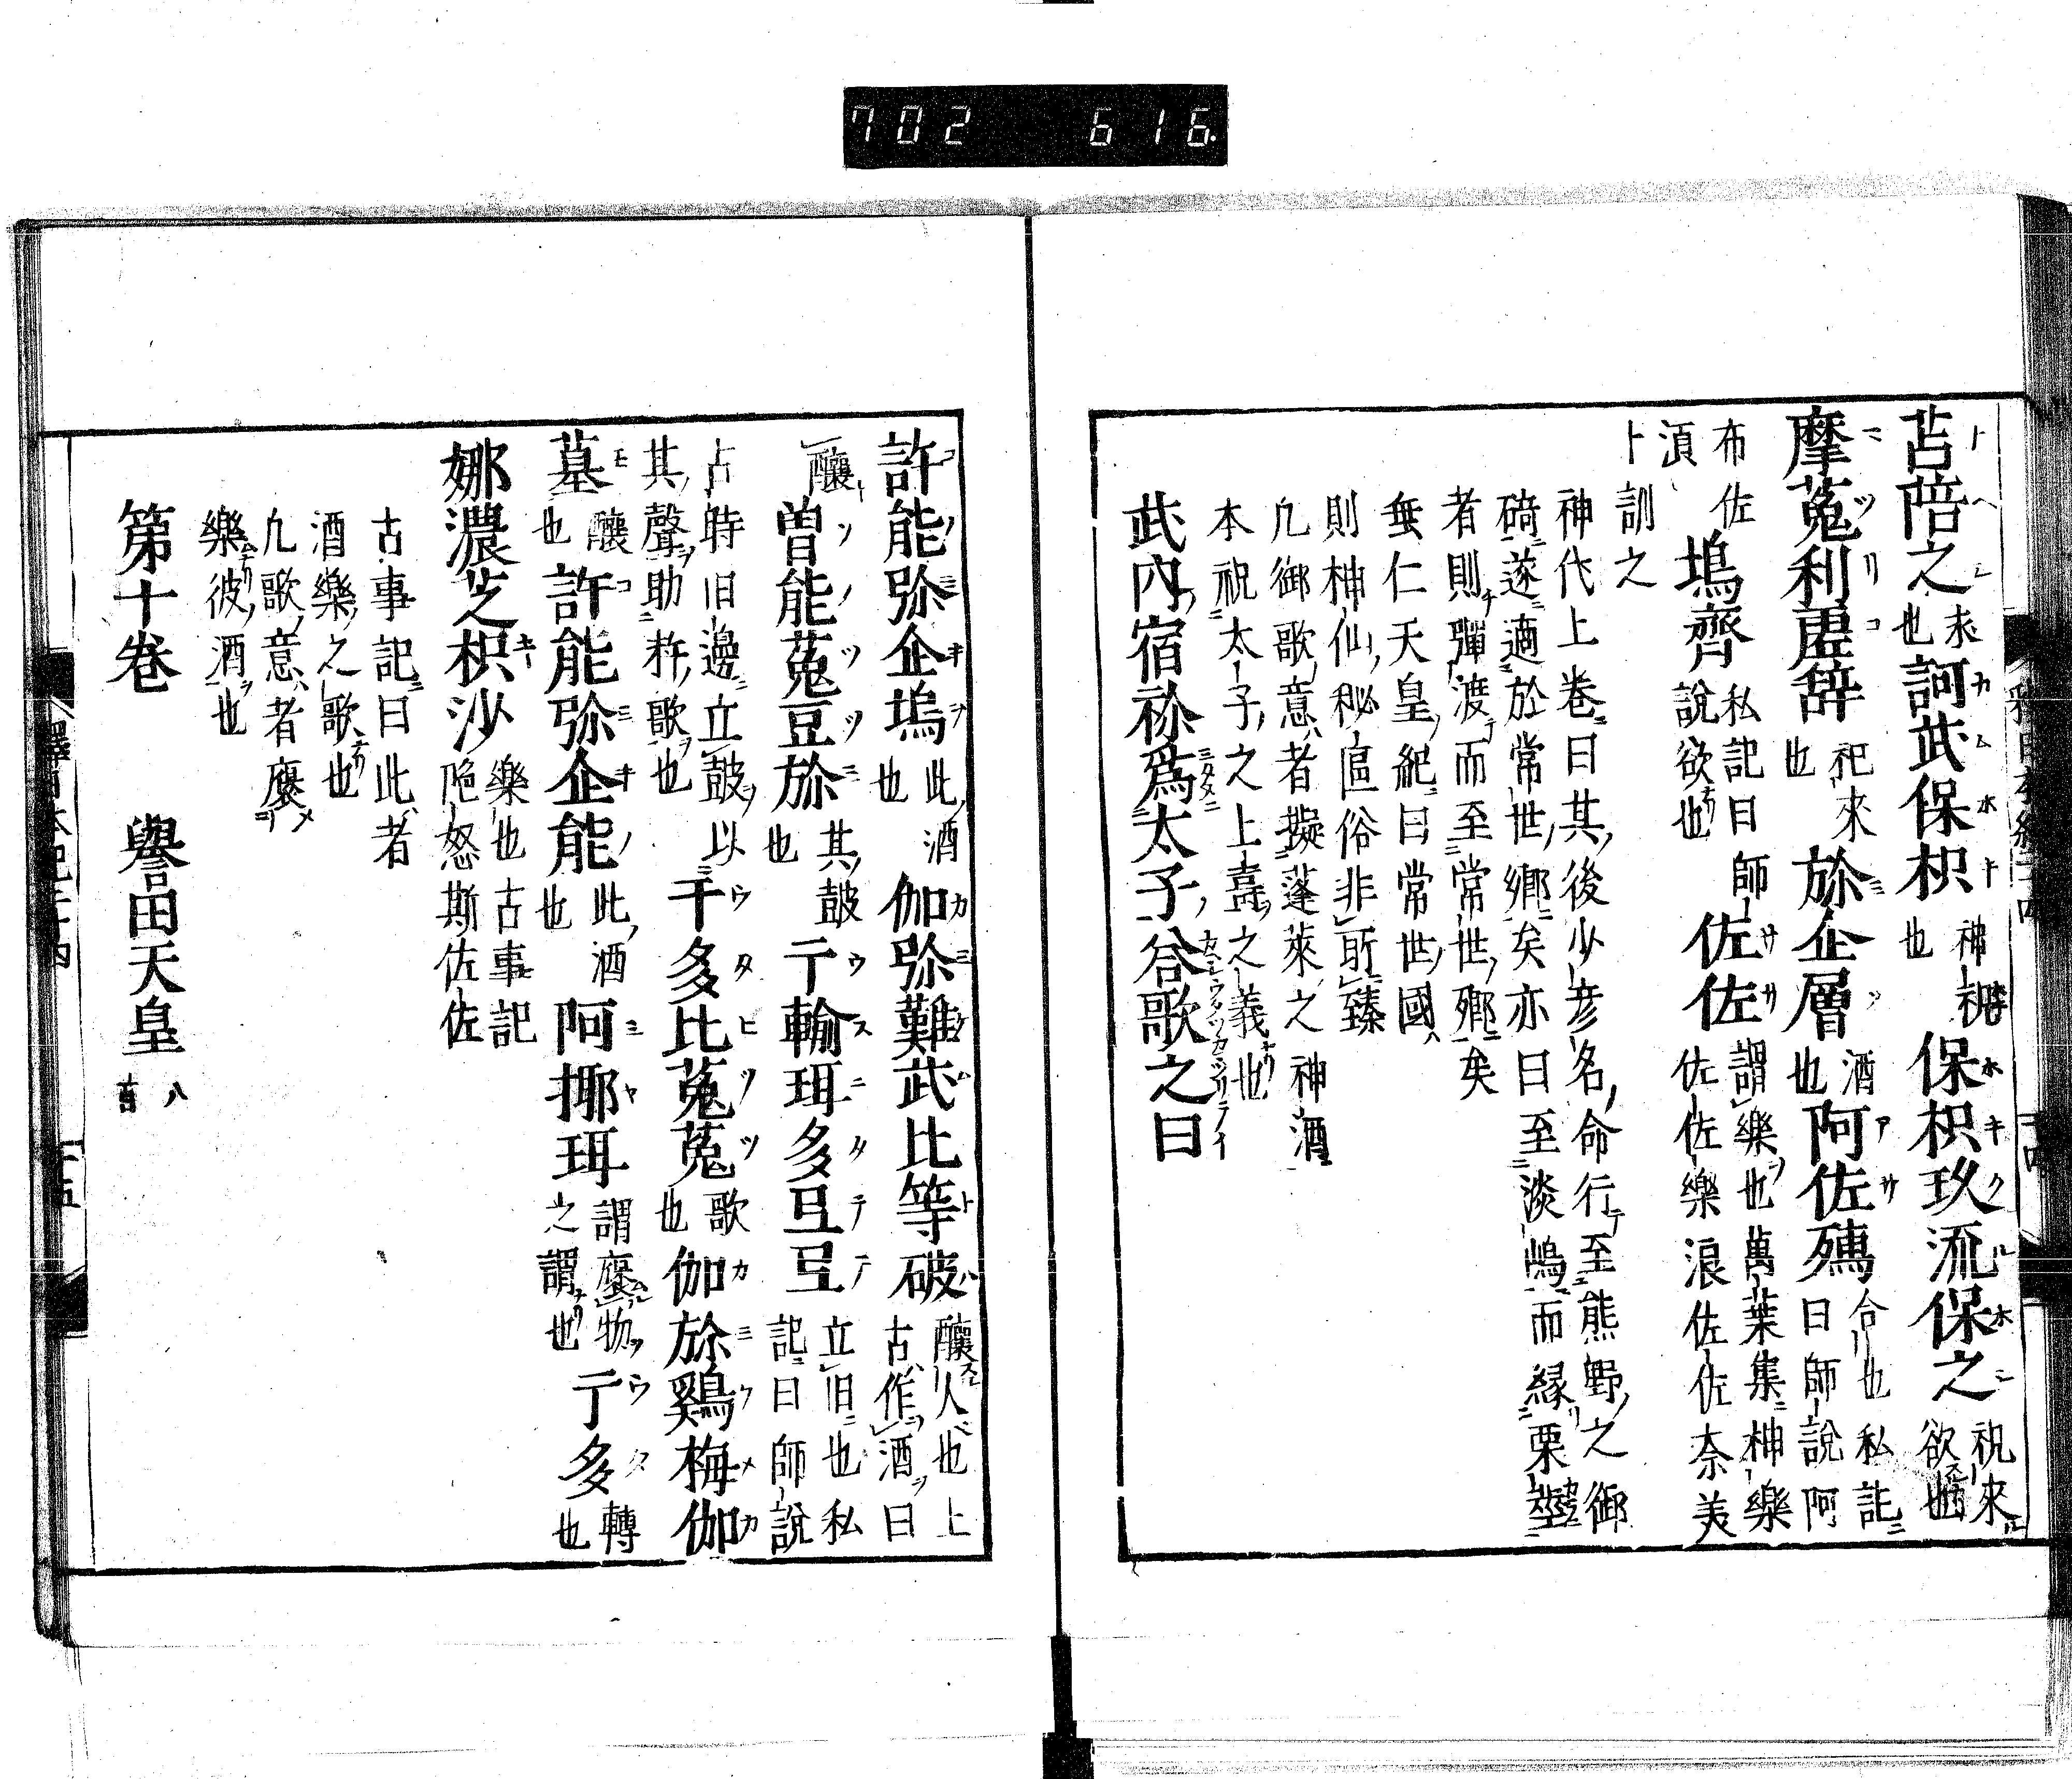 702 616
苫陪之求也訶武保枳神祝也保枳玖流保之祝來欲也
摩菟利虛辞祀來也於企層酒也阿佐孺合也私記曰師說阿
布佐
湏
塢齊私記曰師說欲也佐佐謂樂也萬葉集神樂佐佐樂浪佐佐奈美
卜訓之
神代上卷曰其後少彦名命行至熊野之御
碕遂適於常世郷矣亦曰至淡嶋而緣粟莖
者則彈渡而至常世郷矣
垂仁天皇紀曰常世國
則神仙秘區俗非所臻
凢御歌意者擬蓬萊之神酒
本祝太子之上壽之義也
武内宿祢爲太子荅歌之曰
許能弥企塢此酒也伽弥難武比等破釀人也上古作酒曰
釀
曽能菟豆弥其皷也于輸珥多弖弖立旧也私記曰師說
古時旧邊立皷以
其聲助杵歌也
于多比菟菟歌也伽弥鷄梅伽
墓釀也許能弥企能此酒也阿揶珥謂麼物之謂也于多轉也
娜濃芝枳沙樂也古事記陁怒斯佐佐
古事記曰此者
酒樂之歌也
凢歌意者麼
樂彼酒也
第十卷 譽田天皇
釋日本紀二十四
十五